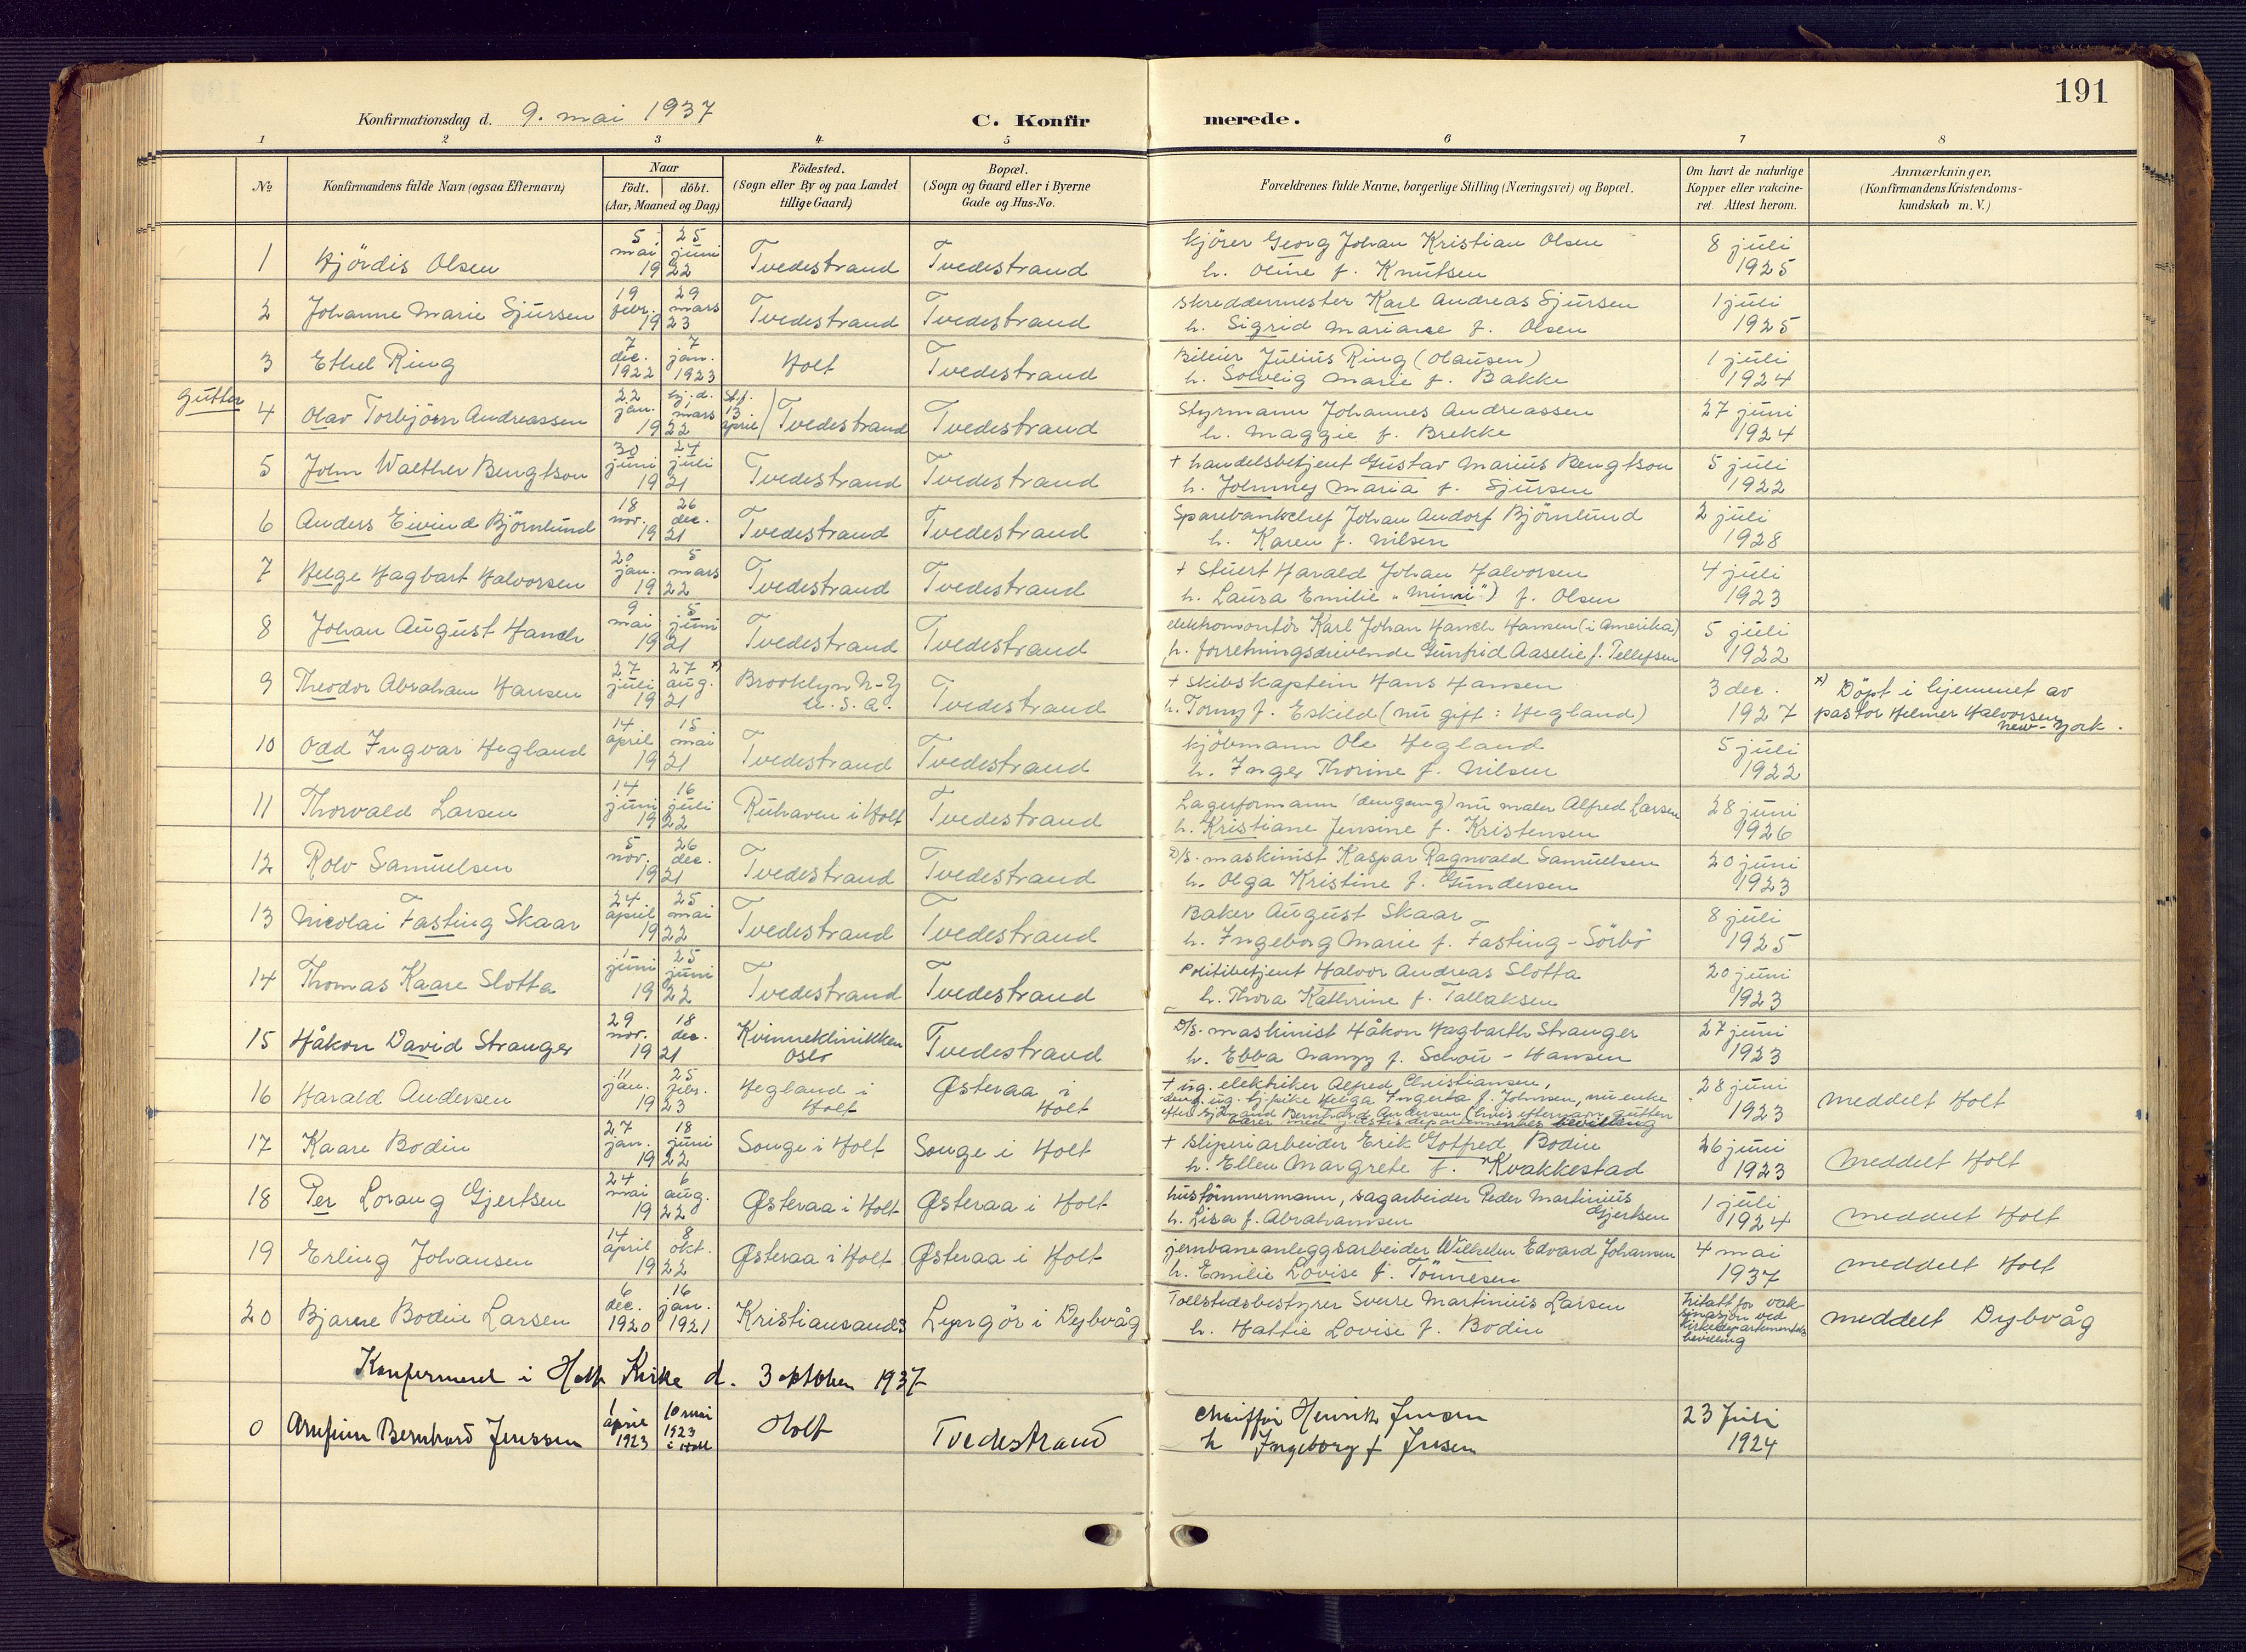 191
Konfirmationsdag d. 9. mai 1937
C. Konfirmerede.
1 2 3 4 5 6 7 8
No Konfirmandens fulde Navn (ogsaa Efternavn) Naar født. døbt. (Aar, Maaned og Dag) Fødested. (Sogn eller By og paa Landet tillige Gaard) Bopæl. (Sogn og Gaard eller i Byerne Gade og Hus-No. Forældrenes fulde Navne, borgerlige Stilling (Næringsvei) og Bopæl. Om havt de naturlige Kopper eller vakcineret. Attest herom. Anmærkninger, (Konfirmandens Kristendomskundskab m. V.)
1 Hjördis Olsen 5 mai 25 juni 1922 Tvedestrand Tvedestrand kjörer Georg Johan Kristian Olsen h. Oline f. Knutsen 8 juli 1925
2 Johanne Marie Sjursen 19 febr. 29 mars 1923 Tvedestrand Tvedestrand skreddermester Karl Andreas Sjursen h. Sigrid Mariane f. Olsen 1 juli 1925
3 Ethel Ring 7 dec. 1922 7 jan. 1923 Holt Tvedestrand Bileier Julius Ring (Olausen) h. Solveig Marie f. Bakke 1 juli 1924
Gutter
4 Olav Torbjörn Andreassen 22 jan. hj. d. 1 mars 1922 st. f. 13 april Tvedestrand Tvedestrand Styrmann Johannes Andreassen h. Maggie f. Brekke 27 juni 1924
5 John Walther Bengtson 30 juni 24 juli 1921 Tvedestrand Tvedestrand + handelsbetjent Gustav Marius Bengtson h. Johnney Maria f. Sjursen 5 juli 1922
6 Anders Eivind Björnlund 18 nov. 26 dec. 1921 Tvedestrand Tvedestrand Sparebankchef Johan Andorf Björnlund h. Karen f. Nilsen 2 juli 1928
7 Helge Hagbart Halvorsen 20 jan. 5 mars 1922 Tvedestrand Tvedestrand + Stuert Harald Johan Halvorsen h. Laura Emilie "Mimi") f. Olsen 4 juli 1923
8 Johan August Hanch 9 mai 5 juni 1921 Tvedestrand Tvedestrand elektromontör Karl Johan Hanch Hansen (i Amerika) h. forretningsdrivende Gunfrid Aaselie f. Tellefsen 5 juli 1922
9 Theodor Abraham Hansen 27 juli 27 aug. x) 1921 Brooklyn N-Y U.S.A. Tvedestrand + skibskaptein Hans Hansen h. Tomy f. Eskild (nu gift: Hegland) 3 dec. 1927 x) Döpt i hjemmet av pastor Helmer Halvorsen New-York.
10 Odd Ingvar Hegland 14 april 15 mai 1921 Tvedestrand Tvedestrand kjöbmann Ole Hegland h. Inger Thorine f. Nilsen 5 juli 1922
11 Thorvald Larsen 14 juni 16 juli 1922 Ruhaven i Holt Tvedestrand Lagerformann (dengang) nu maler Alfred Larsen h. Kristiane Jensine f. Kristensen 28 juni 1926
12 Rolv Samuelsen 5 nov. 26 dec. 1921 Tvedestrand Tvedestrand D/S. maskinist Kaspar Ragnvald Samuelsen h. Olga Kristine f. Gundersen 20 juni 1923
13 Nicolai Fasting Skaar 24 april 25 mai 1922 Tvedestrand Tvedestrand Baker August Skaar h. Ingeborg Marie f. Fasting-Sörbö 8 juli 1925
14 Thomas Kaare Slotta 1 juni 25 juni 1922 Tvedestrand Tvedestrand Politibetjent Halvor Andreas Slotta h. Thora Kathrine f. Tallaksen 20 juni 1923
15 Håkon David Stranger 29 nov. 18 dec. 1921 Kvinneklinikken Oslo Tvedestrand D/S. maskinist Håkon Hagbarth Stranger h. Ebba Nanzy f. Schou-Hansen 27 juni 1923
16 Harald Andersen 11 jan. 25 febr. 1923 Hegland i Holt Østeraa i Holt + ug. elektriker Alfred Christiansen, deng. ug. tj.pike Helga Ingerta f. Johnsen, nu enke efter Bernhard Andersen (hvis efternavn gutten bærer med justisdepartementets bevilling 28 juni 1923 meddelt Holt
17 Kaare Bodin 27 jan. 18 juni 1922 Songe i Holt Songe i Holt + sliperiarbeider Erik Gotfred Bodin h. Ellen Margrete f. Kvakkestad 26 juni 1923 Meddelt Holt
18 Per Lorang Gjertsen 24 mai 6 aug. 1922 Østeraa i Holt Østeraa i Holt hustömmermann, sagarbeider Peder Martinius Gjertsen h. Lisa f. Abrahamsen 1 juli 1924 meddelt Holt
19 Erling Johansen 14 april 8 okt. 1922 Østeraa i Holt Østeraa i Holt jernbaneanleggsarbeider Wilhelm Edvard Johansen h. Emilie Lovise f. Tönnesen 4 mai 1937 meddelt Holt
20 Bjarne Bodin Larsen 6 dec. 1920 16 jan. 1921 Kristiansands Lyngör i Dybvåg Tollstedsbestyrer Sverre Martinius Larsen h. Hattie Lovise f. Bodin fritatt for vaksinasjon ved kirkedepartementets bevilling meddelt Dybvåg
Konfirmert i Holt Kirke d. 3 oktober 1937
0 Arnfinn Bernhard Jenssen 1 april 1923 10 mai 1923 i Holt Holt Tvedestrand chauffør Henrik Jensen h Ingeborg f Jensen 23 Juli 1924